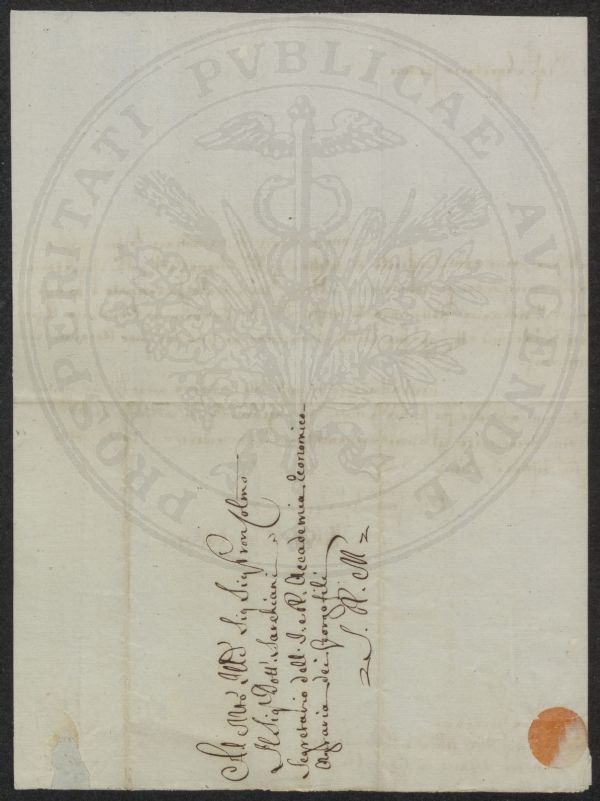 PROSPERITATI PVBLICAE AVGENDAE
Al Mto Illre Sig Sig Pron Colmo
Il Sig Dott Sarchiani
Segretario dell' I. e R. Accademia Economico
Agraria dei Georgofili
S. P. M